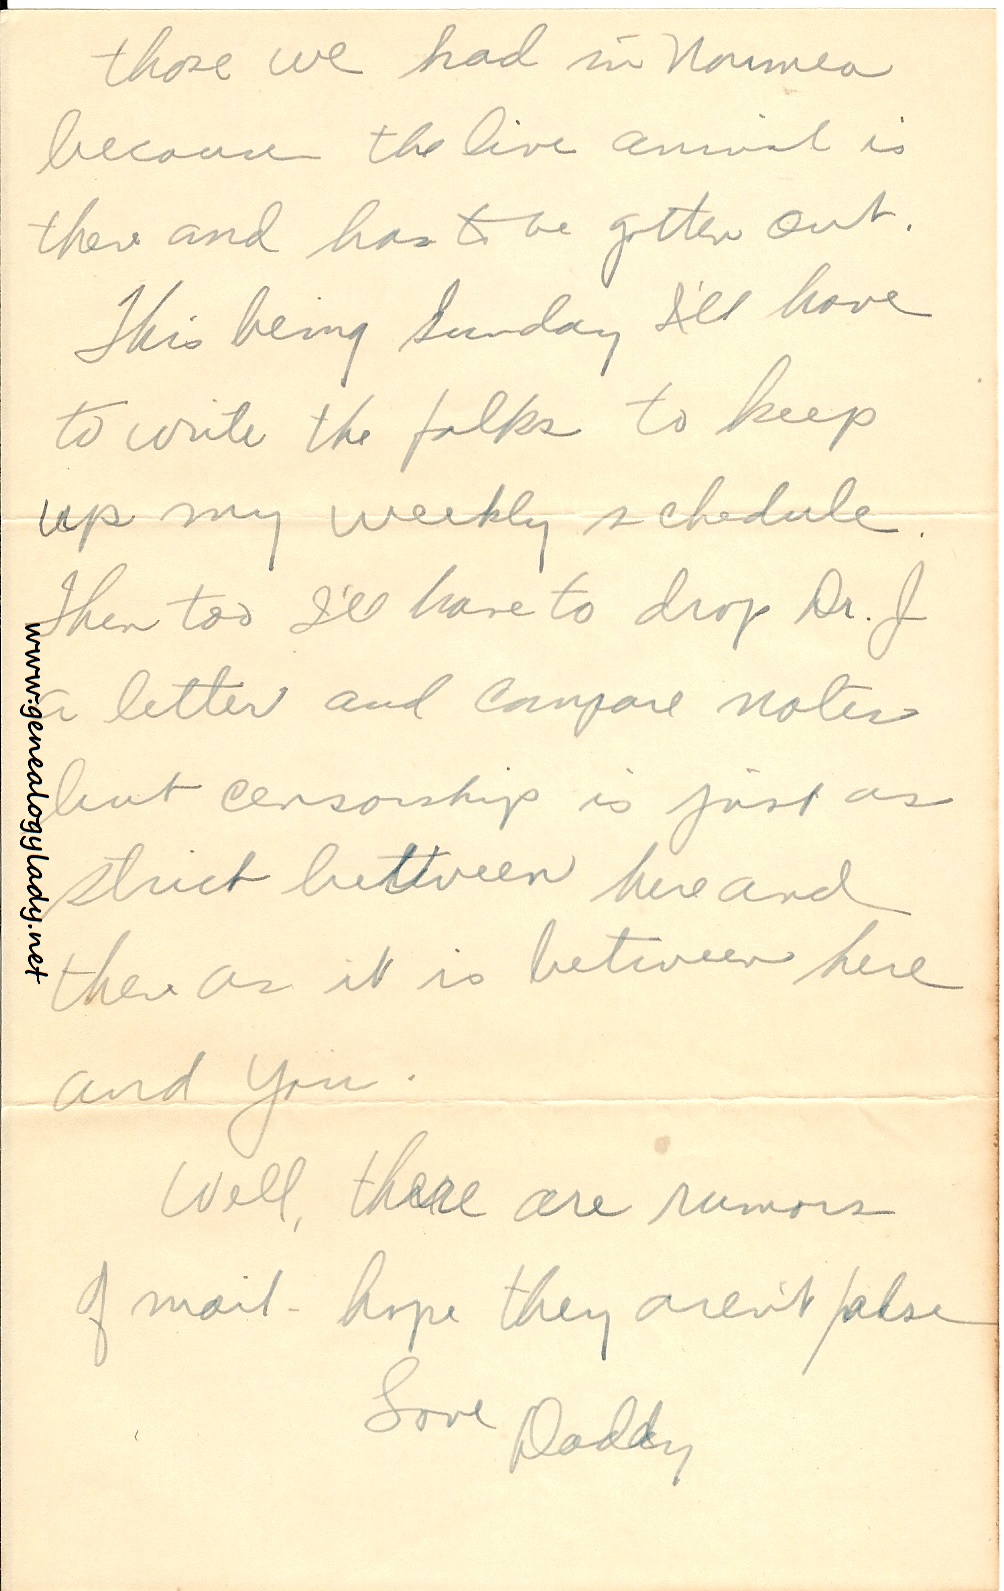 those we had in Noumea
because the live animal is
there and has to be gotten out.
This being Sunday I'll have
to write the folks to keep
up my weekly schedule.
Then too I'll have to drop Dr. J
a letter and compare notes
but censorship is just as
strict between here and
there as it is between here
and you.
Well, there are rumors
of mail - hope they aren't false
Love Daddy
www.genealogylady.net